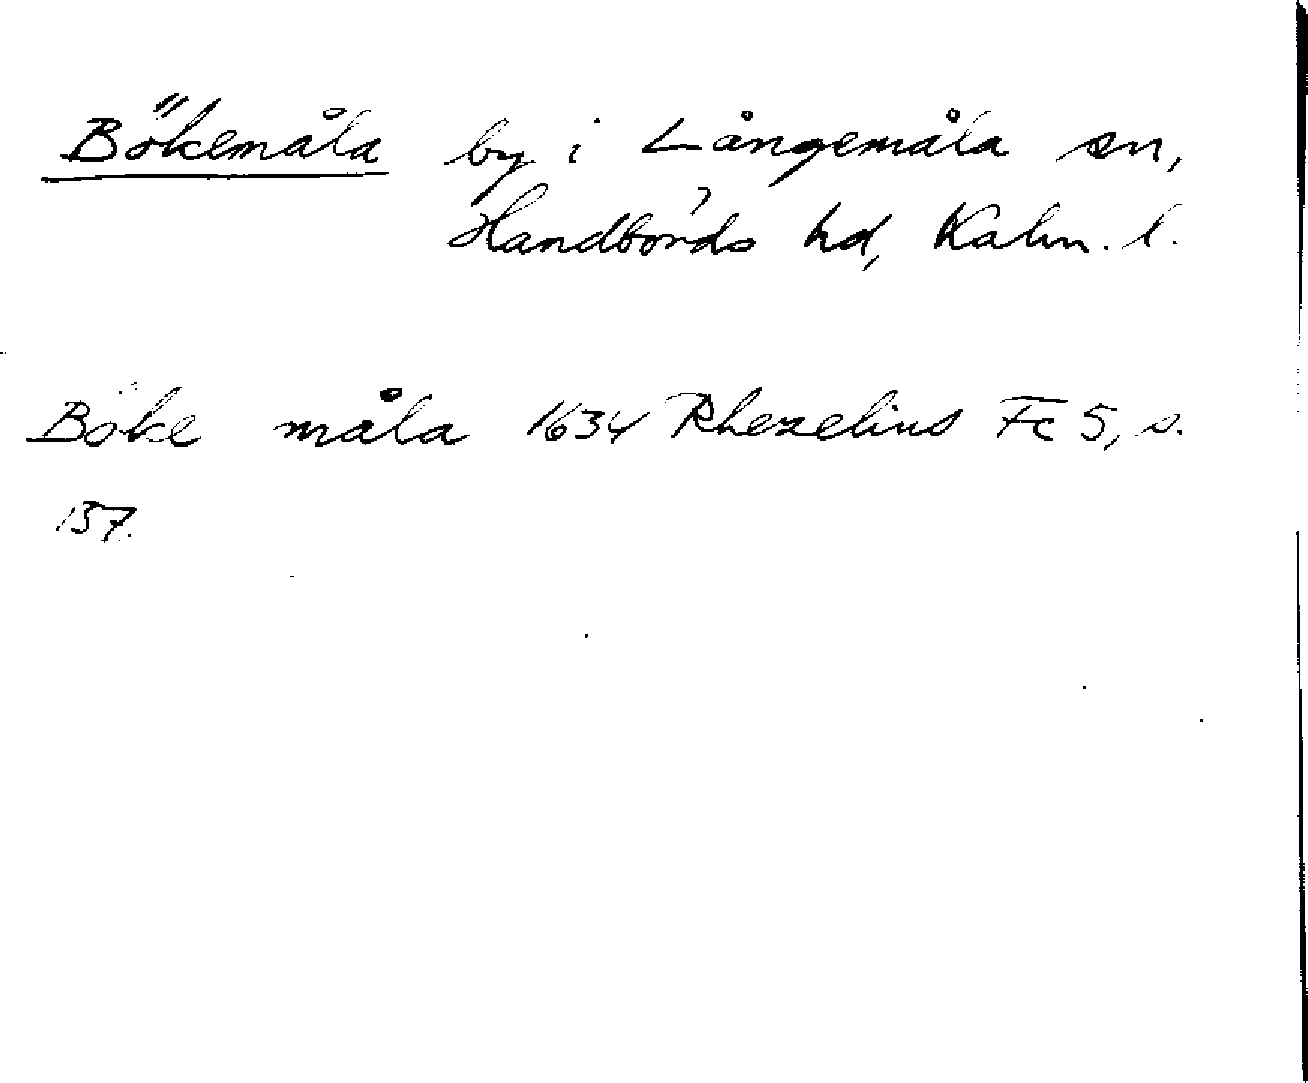 Bökemåla by i Långemåla sn,
Handbörds hd, Kalm. l.
Böke måla 1634 Rhezelius Fc 5, s.
137.